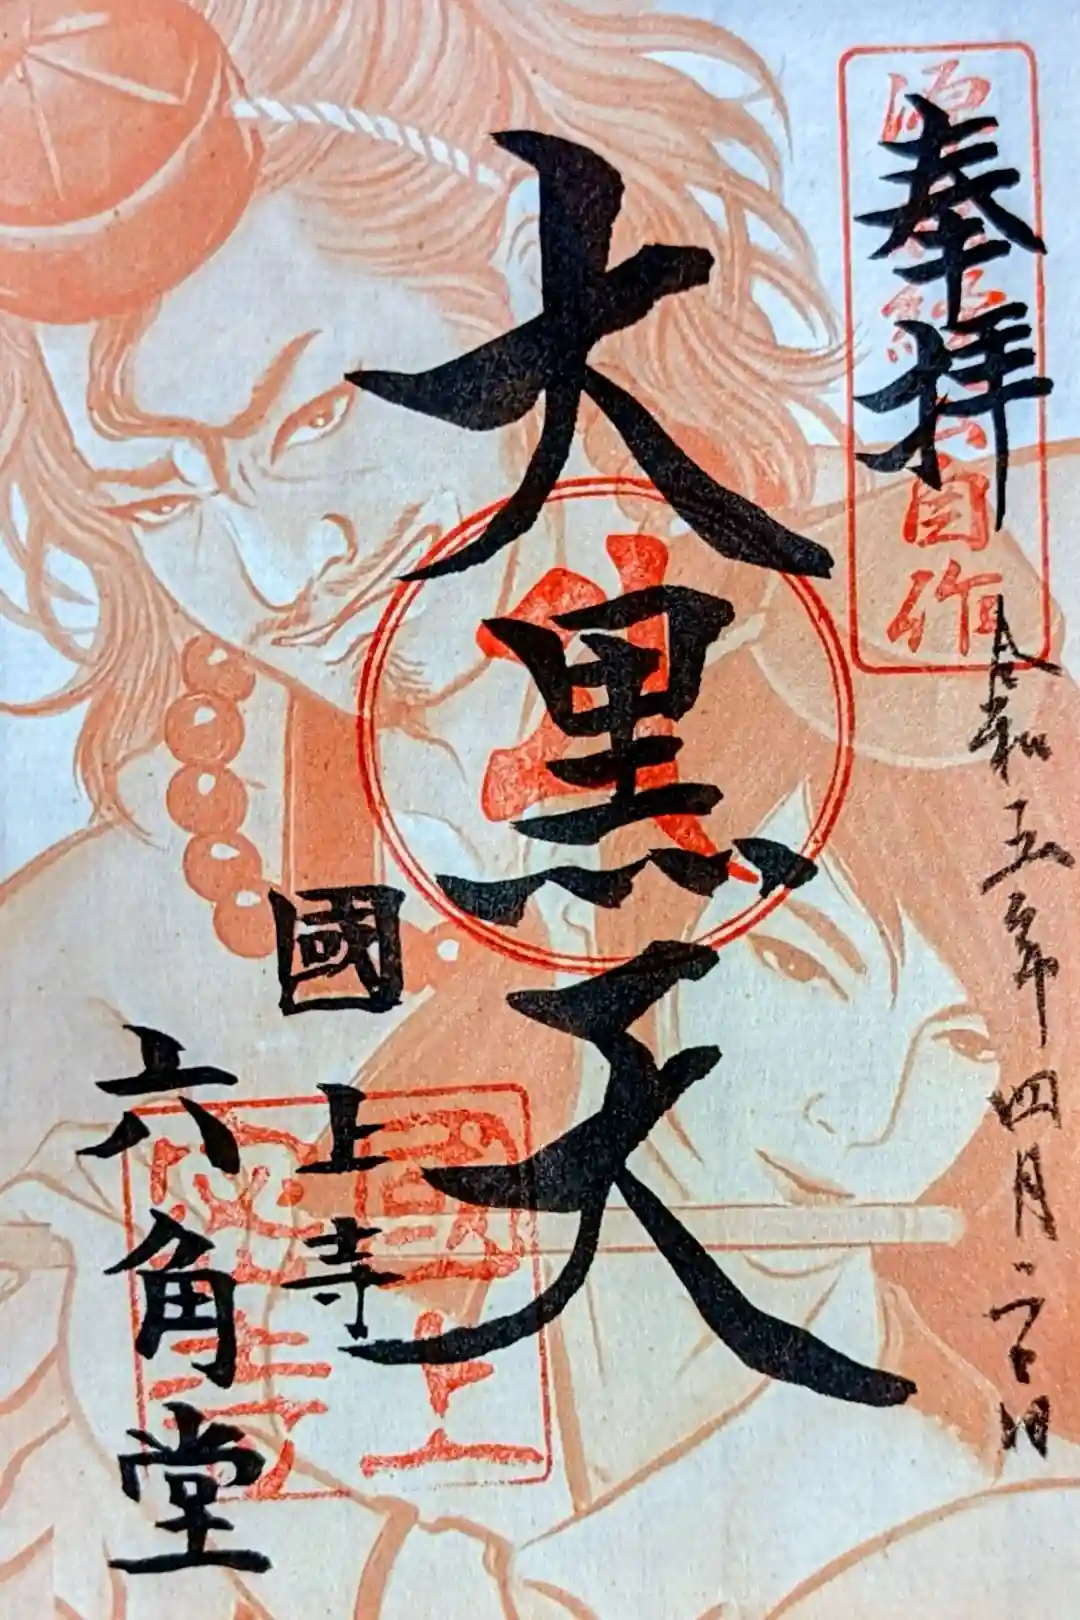 奉拝
令和五年四月二日
源義経公自作
大黒天
國上寺
六角堂